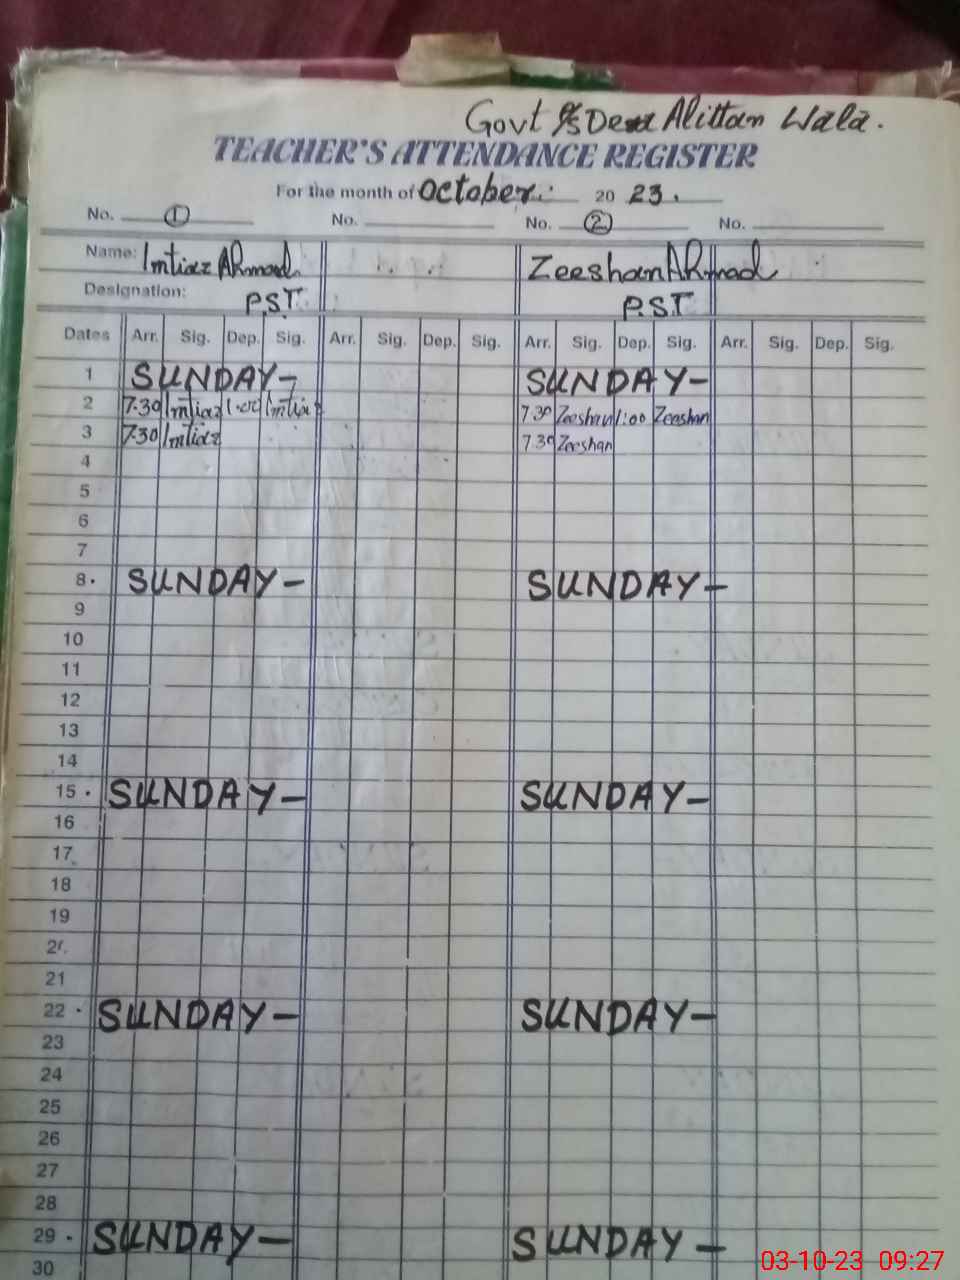 Govt P/S Dera Alittam Wala.
TEACHER'S ATTENDANCE REGISTER
For the month of October. 20 23.
No. 1 No. No. 2 No.
Name: Imtiaz Ahmad Zeeshan Ahmad
Designation: P.S.T P.S.T
Dates Arr. Sig. Dep. Sig. Arr. Sig. Dep. Sig. Arr. Sig. Dep. Sig. Arr. Sig. Dep. Sig.
1 SUNDAY- SUNDAY-
2 7.30 Imtiaz 1.00 Imtiaz 7.30 Zeeshan 1:00 Zeeshan
3 7.30 Imtiaz 7.30 Zeeshan
4
5
6
7
8. SUNDAY- SUNDAY-
9
10
11
12
13
14
15. SUNDAY- SUNDAY-
16
17
18
19
20
21
22. SUNDAY- SUNDAY-
23
24
25
26
27
28
29. SUNDAY- SUNDAY-
30
03-10-23 09:27